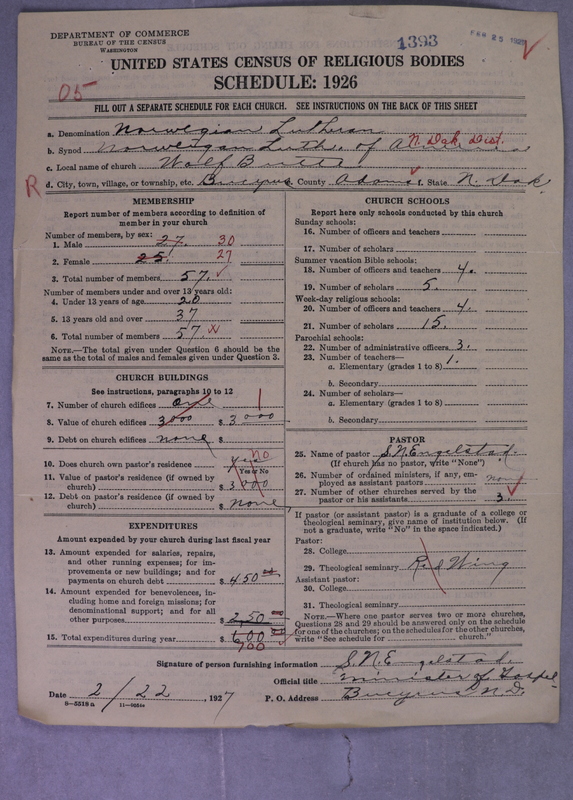 DEPARTMENT OF COMMERCE
BUREAU OF THE CENSUS
WASHINGTON
1393
FEB 25 1927
UNITED STATES CENSUS OF RELIGIOUS BODIES
SCHEDULE: 1926
05
FILL OUT A SEPARATE SCHEDULE FOR EACH CHURCH. SEE INSTRUCTIONS ON THE BACK OF THIS SHEET
a. Denomination Norwegian Lutheran
b. Synod Norwegian Luth. of America N. Dak. Dist.
c. Local name of church Wolf Butte
R d. City, town, village, or township, etc. Bucyrus County Adams f. State N. Dak.
MEMBERSHIP
Report number of members according to definition of member in your church
Number of members, by sex:
1. Male 27. 30
2. Female 25. 27
3. Total number of members 57.
Number of members under and over 13 years old:
4. Under 13 years of age 20
5. 13 years old and over 37
6. Total number of members 57. x
NOTE.—The total given under Question 6 should be the same as the total of males and females given under Question 3.
CHURCH BUILDINGS
See instructions, paragraphs 10 to 12
7. Number of church edifices one 1
8. Value of church edifices 3000 $ 3000
9. Debt on church edifices none $
10. Does church own pastor's residence yes no
Yes or No
11. Value of pastor's residence (if owned by church) $ 3000
12. Debt on pastor's residence (if owned by church) $ none
EXPENDITURES
Amount expended by your church during last fiscal year
13. Amount expended for salaries, repairs, and other running expenses; for improvements or new buildings; and for payments on church debt $ 450 00
14. Amount expended for benevolences, including home and foreign missions; for denominational support; and for all other purposes $ 250
15. Total expenditures during year $ 600
700
CHURCH SCHOOLS
Report here only schools conducted by this church
Sunday schools:
16. Number of officers and teachers
17. Number of scholars
Summer vacation Bible schools:
18. Number of officers and teachers 4.
19. Number of scholars 5.
Week-day religious schools:
20. Number of officers and teachers 4.
21. Number of scholars 15.
Parochial schools:
22. Number of administrative officers 3.
23. Number of teachers—
a. Elementary (grades 1 to 8) 1.
b. Secondary
24. Number of scholars—
a. Elementary (grades 1 to 8)
b. Secondary
PASTOR
25. Name of pastor S.N. Engelstad.
(If church has no pastor, write "None")
26. Number of ordained ministers, if any, employed as assistant pastors none
27. Number of other churches served by the pastor or his assistants 3.
If pastor (or assistant pastor) is a graduate of a college or theological seminary, give name of institution below. (If not a graduate, write "No" in the space indicated.)
Pastor:
28. College
29. Theological seminary Red Wing
Assistant pastor:
30. College
31. Theological seminary
NOTE.—Where one pastor serves two or more churches, Questions 28 and 29 should be answered only on the schedule for one of the churches; on the schedules for the other churches, write "See schedule for church."
Signature of person furnishing information S.N. Engelstad.
Official title Minister of Gospel
Date 2/22, 1927 P. O. Address Bucyrus N.D.
8—5518a 11—9054a